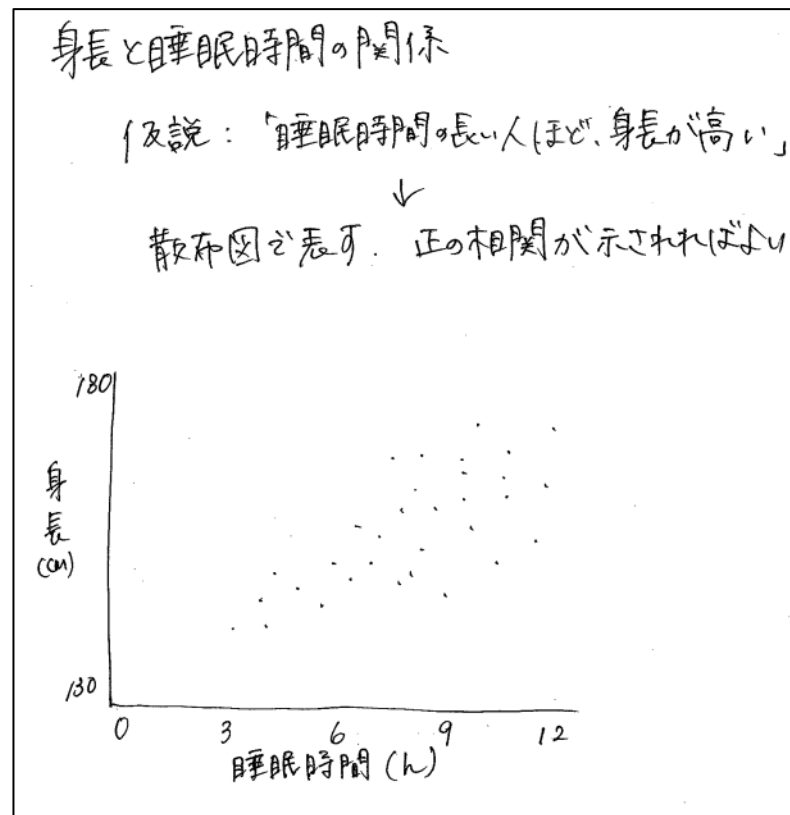 身長と睡眠時間の関係
仮説：「睡眠時間の長い人ほど、身長が高い」
↓
散布図で表す. 正の相関が示されればよい
180
身長
(cm)
130
0 3 6 9 12
睡眠時間(h)